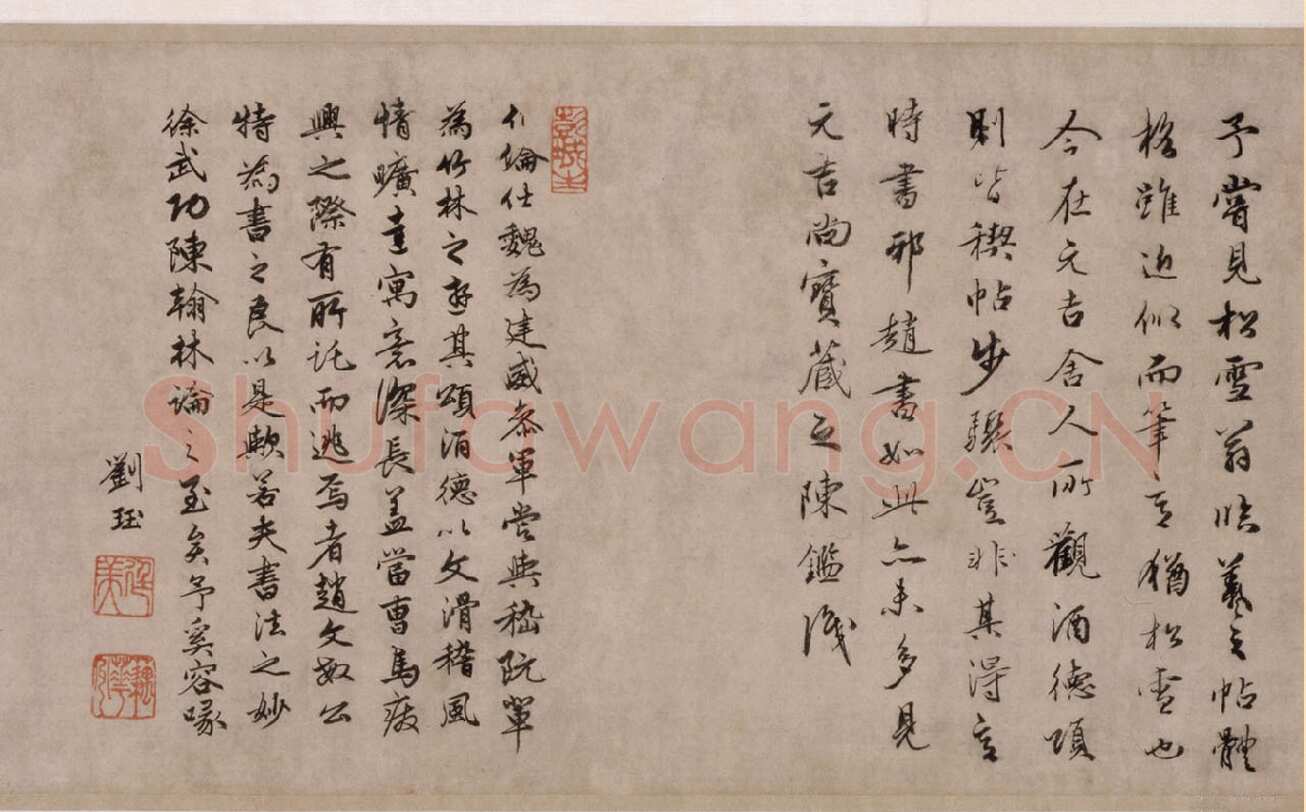 予嘗見松雪翁臨羲之帖體
格雖近似而筆意猶松雪也
今在元吉舍人所觀酒德頌
則皆稧帖步驟豈非其得意
時書邪趙書如此亦未多見
元吉尚寶藏之陳鑑識
彭城
伯倫仕魏為建威參軍嘗與嵇阮輩
為竹林之遊其頌酒德以文滑稽風
情曠達寓意深長蓋當曹馬廢
興之際有所託而逃焉者趙文敏公
特為書之良以是歟若夫書法之妙
徐武功陳翰林論之至矣予奚容喙
劉珏
廷美
Shufawang.CN